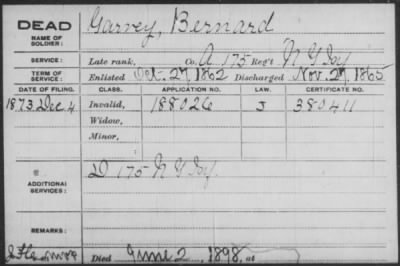 DEAD Garvey, Bernard
NAME OF SOLDIER:
SERVICE: Late rank, Co. A, 175 Reg't N Y Inf.
TERM OF SERVICE: Enlisted Oct. 27, 1862 Discharged Nov. 27, 1865
DATE OF FILING. CLASS. APPLICATION NO. LAW. CERTIFICATE NO.
1873 Dec 4 Invalid, 188026 J 380411
Widow,
Minor,
ADDITIONAL SERVICES: D 175 N Y Inf.
REMARKS:
Died June 2, 1898, at